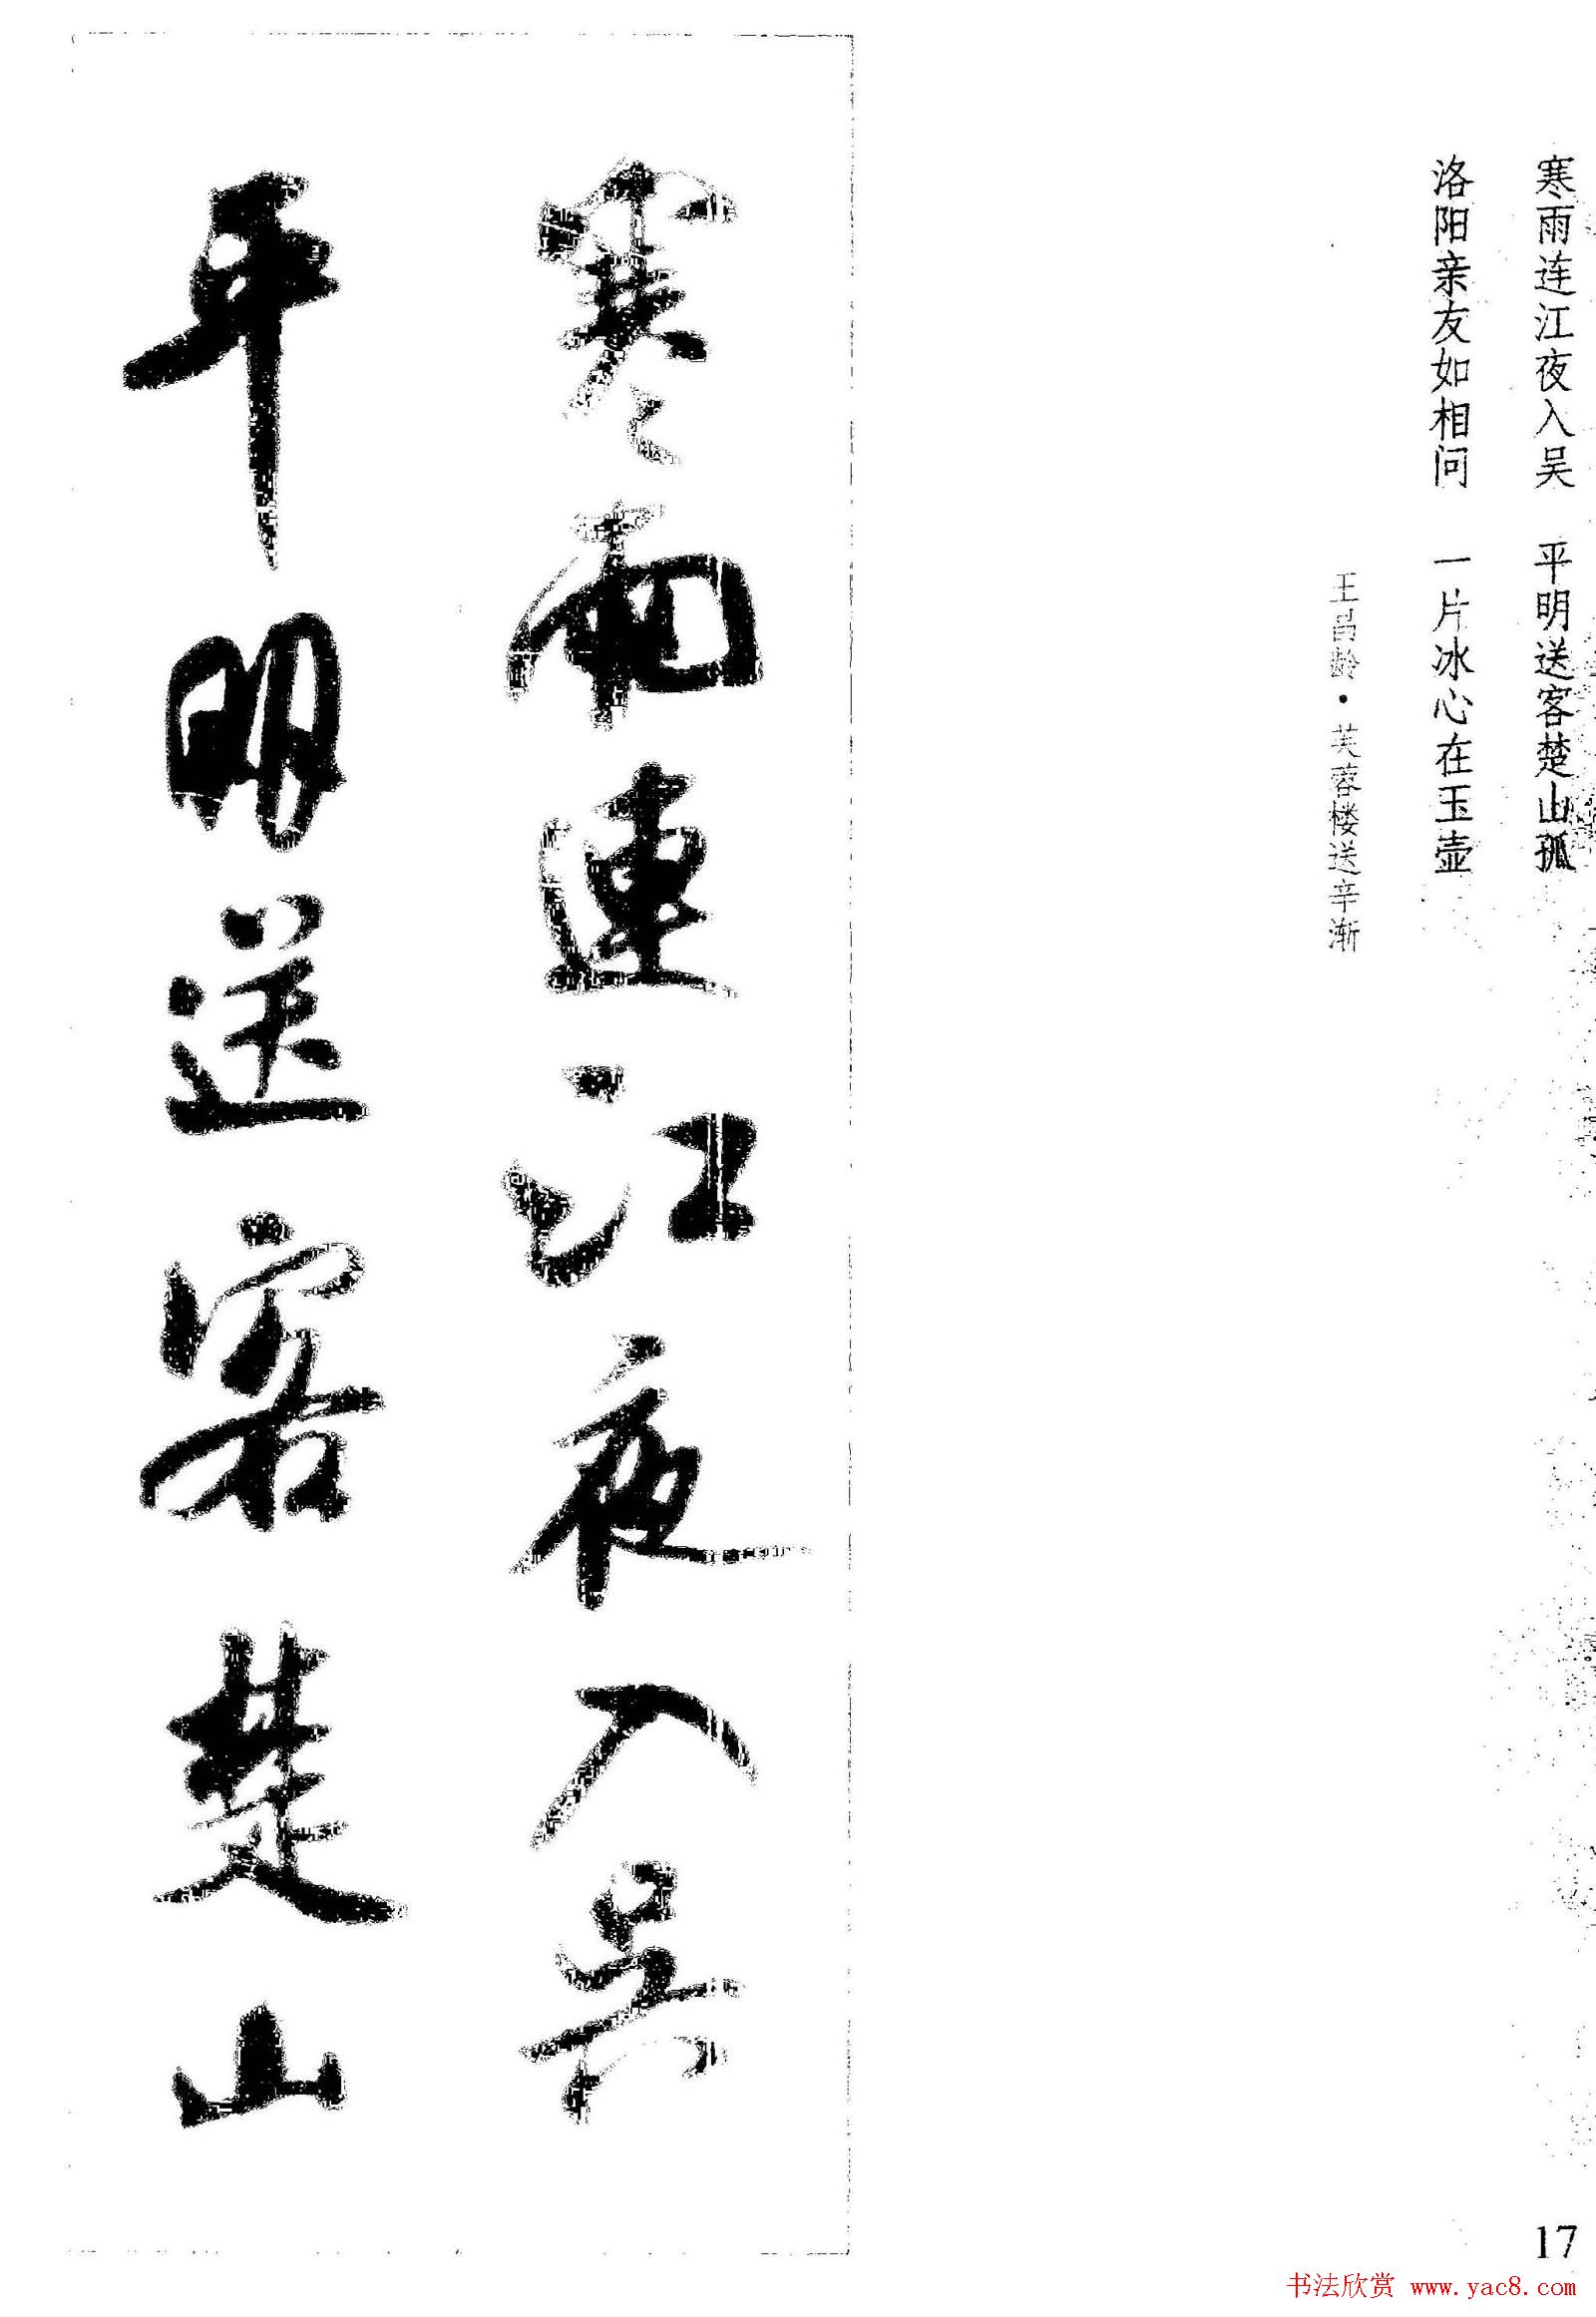 寒雨连江夜入吴　平明送客楚山孤
洛阳亲友如相问　一片冰心在玉壶
王昌龄·芙蓉楼送辛渐
寒雨連江夜入吳
平明送客楚山
17
书法欣赏 www.yac8.com